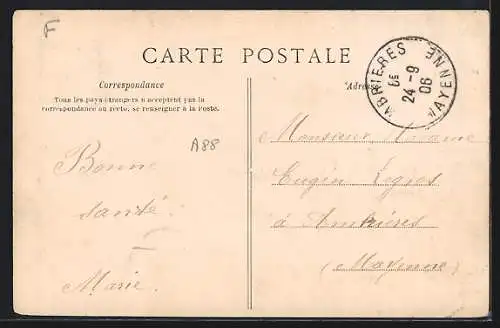 F
CARTE POSTALE
Correspondance
Tous les pays étrangers n'acceptent pas la
correspondance au recto, se renseigner à la Poste.
Adresse
AMBRIERES
24 - 9
06
MAYENNE
A88
Bonne
santé
Marie.
Monsieur
Eugin
à Ambrières
(Mayenne)